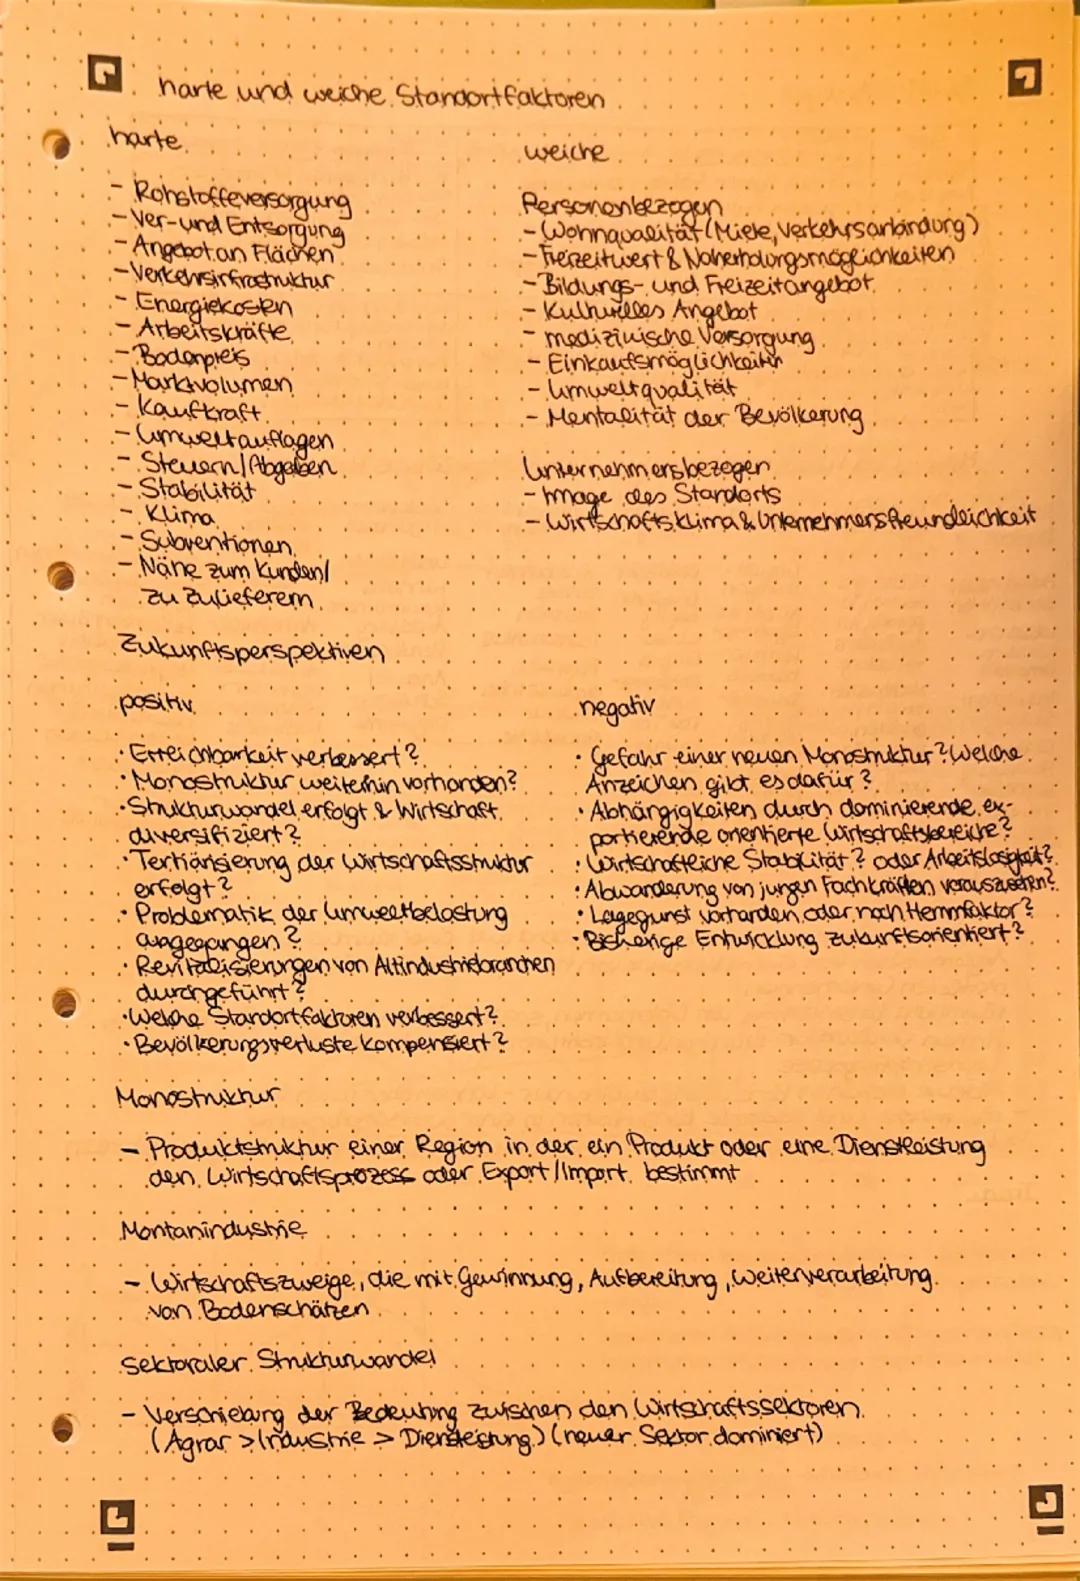 harte und weiche Standortfaktoren
harte
- Rohstoffeversorgung
- Ver- und Entsorgung
- Angebot an Flächen
- Verkehrsinfrastruktur
- Energiekosten
- Arbeitskräfte
- Bodenpreis
- Marktvolumen
- Kaufkraft
- Umweltauflagen
- Steuern/Abgaben
- Stabilität
- Klima
- Subventionen
- Nähe zum Kunden/
zu Zulieferern
weiche
Personenbezogen
- Wohnqualität (Miete, Verkehrsanbindung)
- Freizeitwert & Naherholungsmöglichkeiten
- Bildungs- und Freizeitangebot
- Kulturelles Angebot
- medizinische Versorgung
- Einkaufsmöglichkeiten
- Umweltqualität
- Mentalität der Bevölkerung
Unternehmensbezogen
- Image des Standorts
- Wirtschaftsklima & Unternehmensfreundlichkeit
Zukunftsperspektiven
positiv
· Erreichbarkeit verbessert?
· Monostruktur weiterhin vorhanden?
· Strukturwandel erfolgt & Wirtschaft
diversifiziert?
· Tertiärisierung der Wirtschaftsstruktur
erfolgt?
· Problematik der Umweltbelastung
angegangen?
· Revitalisierungen von Altindustriebranchen
durchgeführt?
· Welche Standortfaktoren verbessert?
· Bevölkerungsverluste kompensiert?
negativ
· Gefahr einer neuen Monostruktur? Welche
Anzeichen gibt es dafür?
· Abhängigkeiten durch dominierende, ex-
portierende orientierte Wirtschaftsbereiche?
· Wirtschaftliche Stabilität? oder Arbeitslosigkeit?
· Abwanderung von jungen Fachkräften vorauszusehen?
· Lagegunst vorhanden oder noch Hemmfaktor?
· Bisherige Entwicklung zukunftsorientiert?
Monostruktur
- Produktstruktur einer Region in der ein Produkt oder eine Dienstleistung
den Wirtschaftsprozess oder Export/Import bestimmt
Montanindustrie
- Wirtschaftszweige, die mit Gewinnung, Aufbereitung, Weiterverarbeitung
von Bodenschätzen
Sektoraler Strukturwandel
- Verschiebung der Bedeutung zwischen den Wirtschaftssektoren
(Agrar > Industrie > Dienstleistung) (neuer Sektor dominiert)